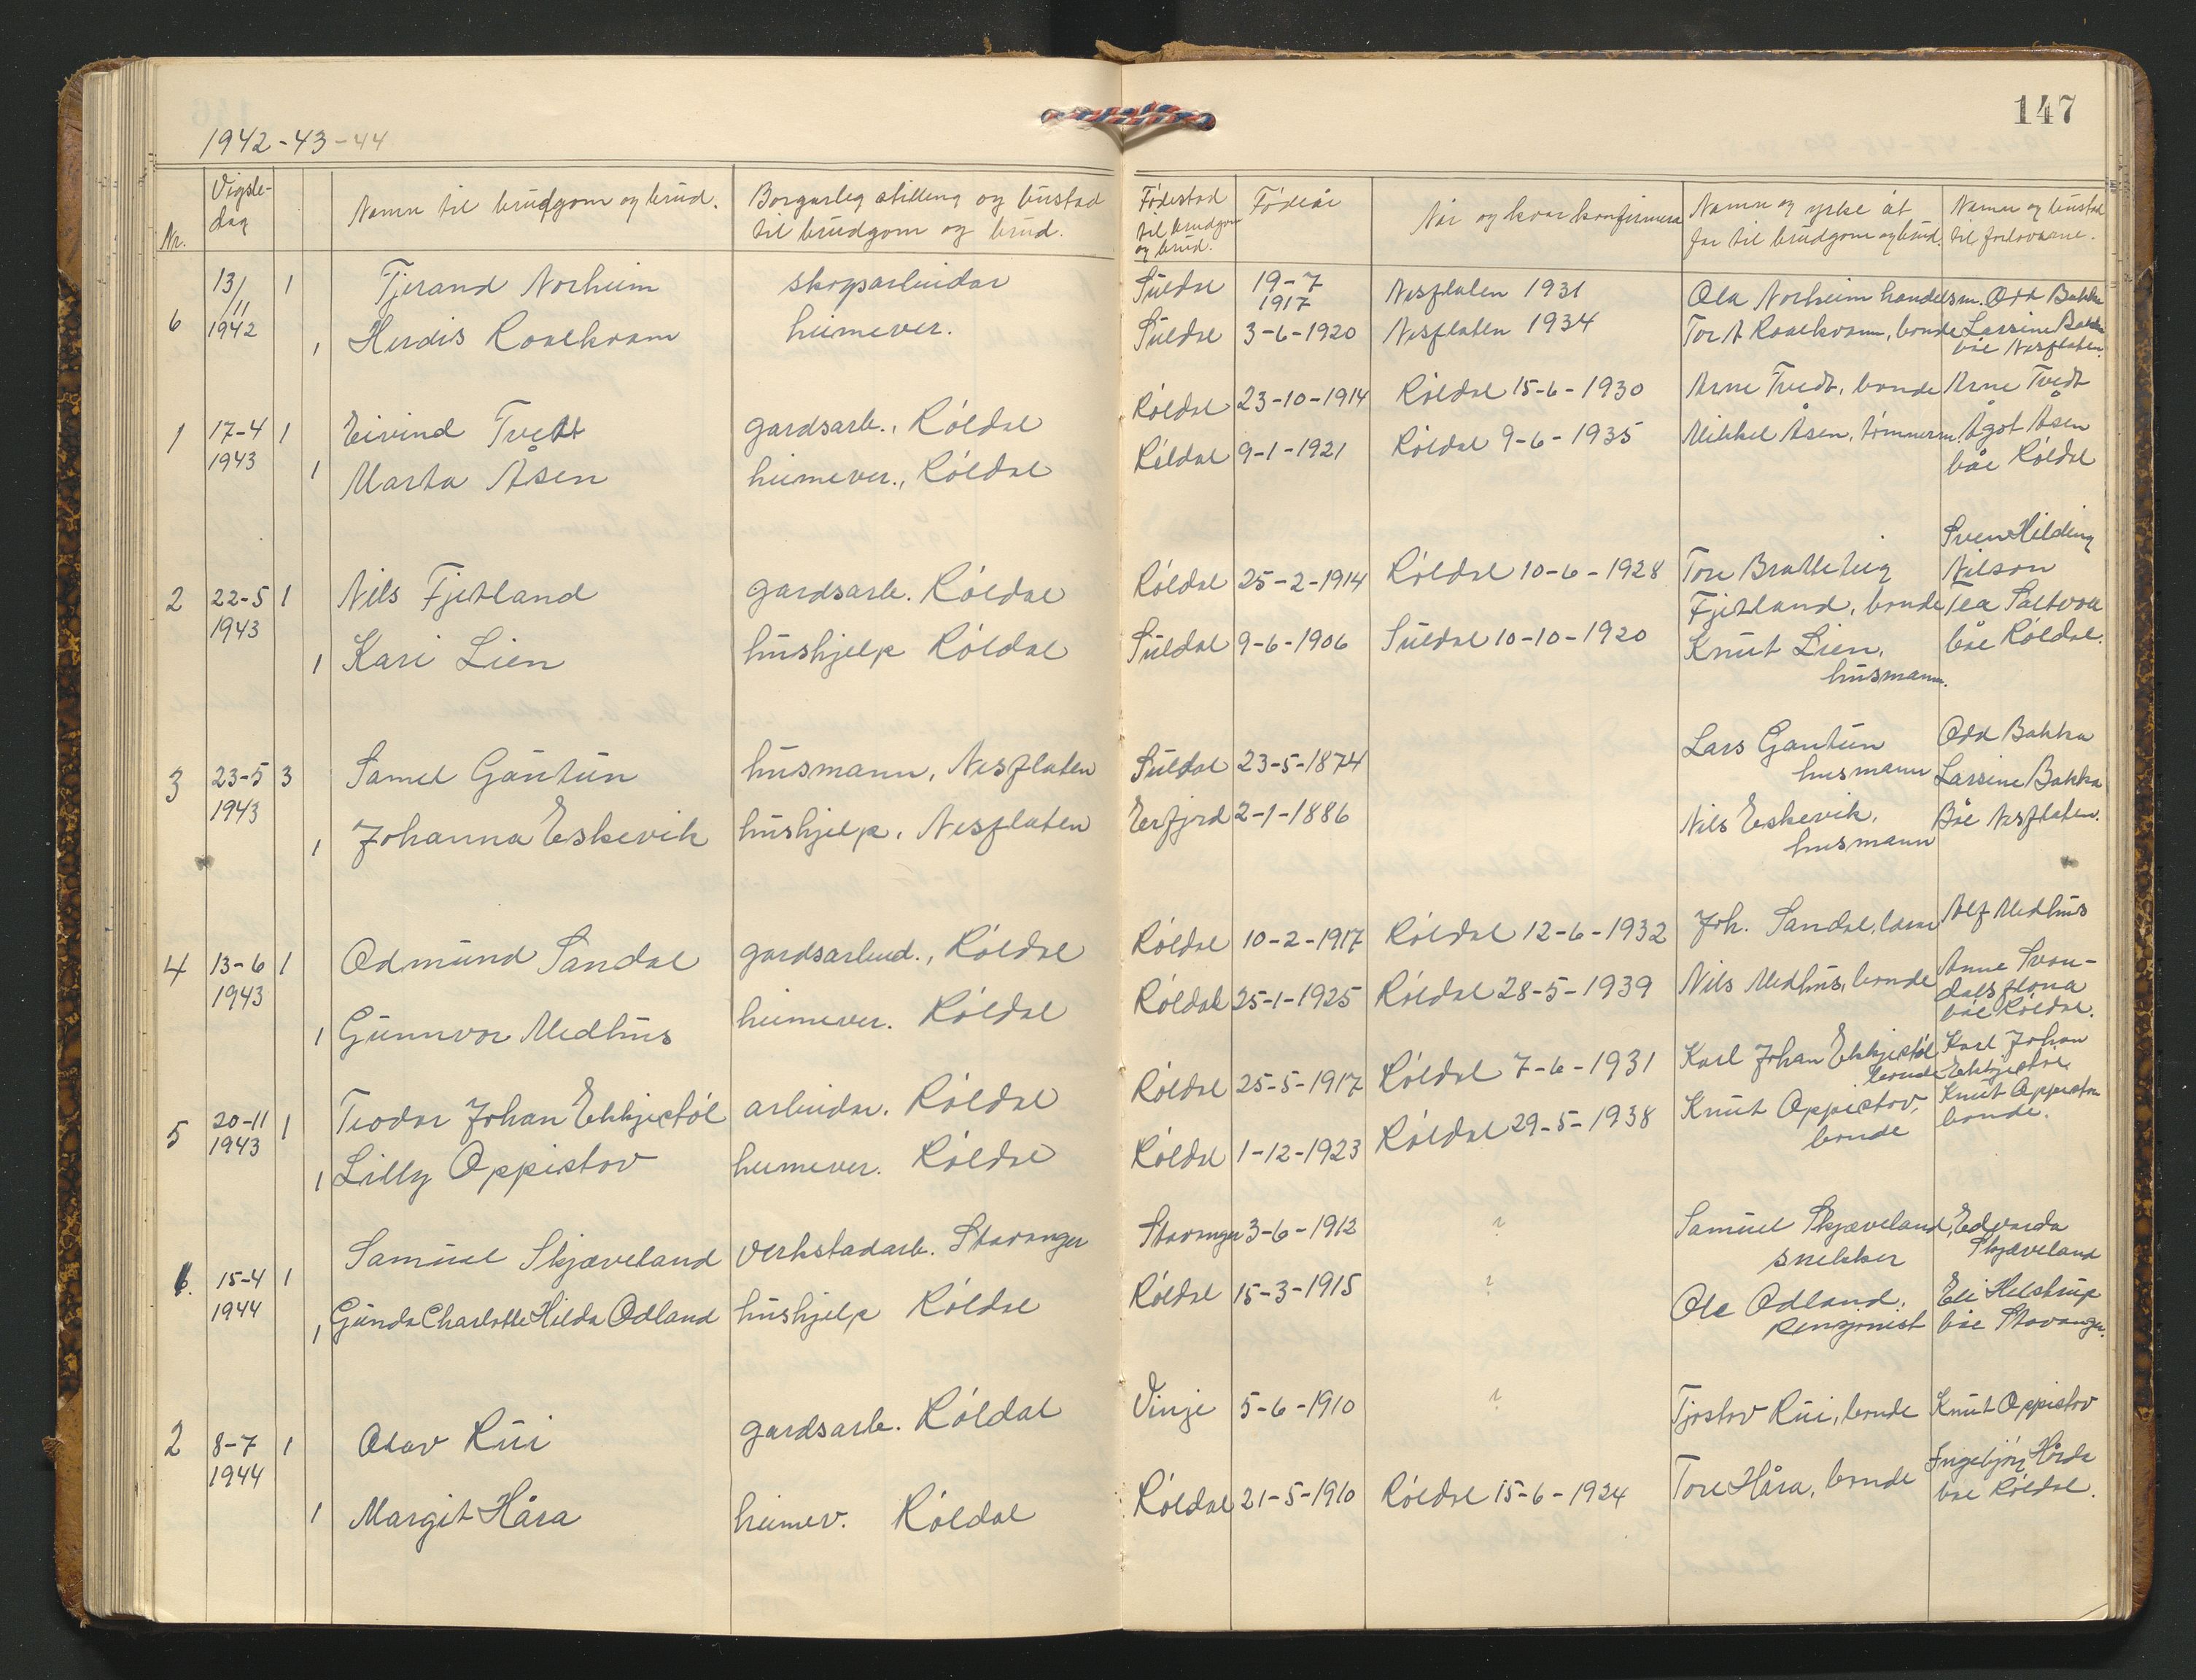 147
1942-43-44
Nr. Vigsle-dag Namn til brudgom og brud. Borgarleg stilling og bustad til brudgom og brud. Fødestad til brudgom og brud. Fødeår Når og kvar konfirmera Namn og yrke åt far til brudgom og brud. Namn og bustad til forlovarne.
6 13/11 1942 1 Tjerand Norheim skogsarbeidar Suldal 19-7 1917 Nesflaten 1931 Ola Norheim handelsm. Odd Bakka
1 Herdis Roalkvam heimever. Suldal 3-6-1920 Nesflaten 1934 Tor A Roalkvam, bonde Larsine Bakka båe Nesflaten.
1 17-4 1943 1 Eivind Tvedt gardsarb., Røldal Røldal 23-10-1914 Røldal 15-6-1930 Arne Tvedt, bonde Arne Tvedt
1 Marta Åsen heimever., Røldal Røldal 9-1-1921 Røldal 9-6-1935 Mikkel Åsen, tømmerm. Ågot Åsen båe Røldal
2 22-5 1943 1 Nils Fjetland gardsarb. Røldal Røldal 25-2-1914 Røldal 10-6-1928 Tore Bratteteig Fjetland, bonde Sven Hilding Nilson
1 Kari Lien hushjelp Røldal Suldal 9-6-1906 Suldal 10-10-1920 Knut Lien, husmann. Tea Saltvoll båe Røldal.
3 23-5 1943 3 Samel Gautun husmann, Nesflaten Suldal 23-5-1874 Lars Gautun husmann Odd Bakka
1 Johanna Eskevik hushjelp, Nesflaten Erfjord 2-1-1886 Nils Eskevik, husmann Larsine Bakka Båe Nesflaten.
4 13-6 1943 1 Odmund Sandal gardsarbeid., Røldal Røldal 10-2-1917 Røldal 12-6-1932 Joh. Sandal, Alf Medhus
1 Gunnvor Medhus heimever. Røldal Røldal 25-1-1925 Røldal 28-5-1939 Nils Medhus, bonde Anne Svan-dalsflona båe Røldal.
5 20-11 1943 1 Teodor Johan Ekkjestøl arbeidar. Røldal Røldal 25-5-1917 Røldal 7-6-1931 Karl Johan Ekkjestøl bonde Karl Johan Ekkjestøl
1 Lilly Oppistov heimever. Røldal Røldal 1-12-1923 Røldal 29-5-1938 Knut Oppistov, bonde Knut Oppistov bonde.
1. 15-4 1944 1 Samuel Skjæveland verkstadarb. Stavanger Stavanger 3-6-1912 ? Samuel Skjæveland, snekker Edvarda Skjæveland
1 Gunda Charlotte Hilda Odland hushjelp Røldal Røldal 15-3-1915 ? Ole Odland, pensjonist Eli Helstrup båe Stavanger.
2 8-7 1944 1 Olav Rui gardsarb. Røldal Vinje 5-6-1910 ? Tjostov Rui, bonde Knut Oppistov
1 Margit Håra heimev. Røldal Røldal 21-5-1910 Røldal 15-6-1924 Tore Håra, bonde Ingebjørg Hårda båe Røldal.